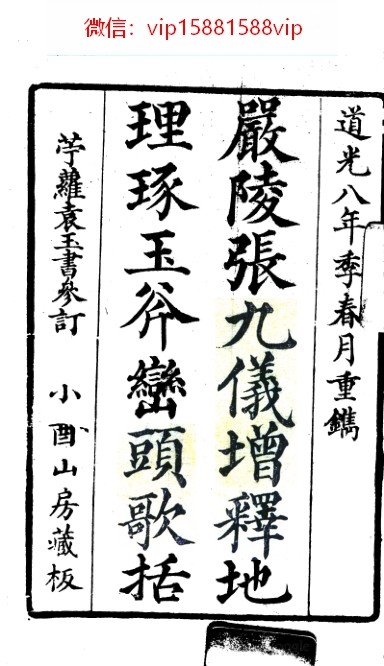 微信：vip15881588vip
道光八年季春月重鐫
嚴陵張九儀增釋地
理琢玉斧巒頭歌括
苧蘿袁玉書參訂
小酉山房藏板